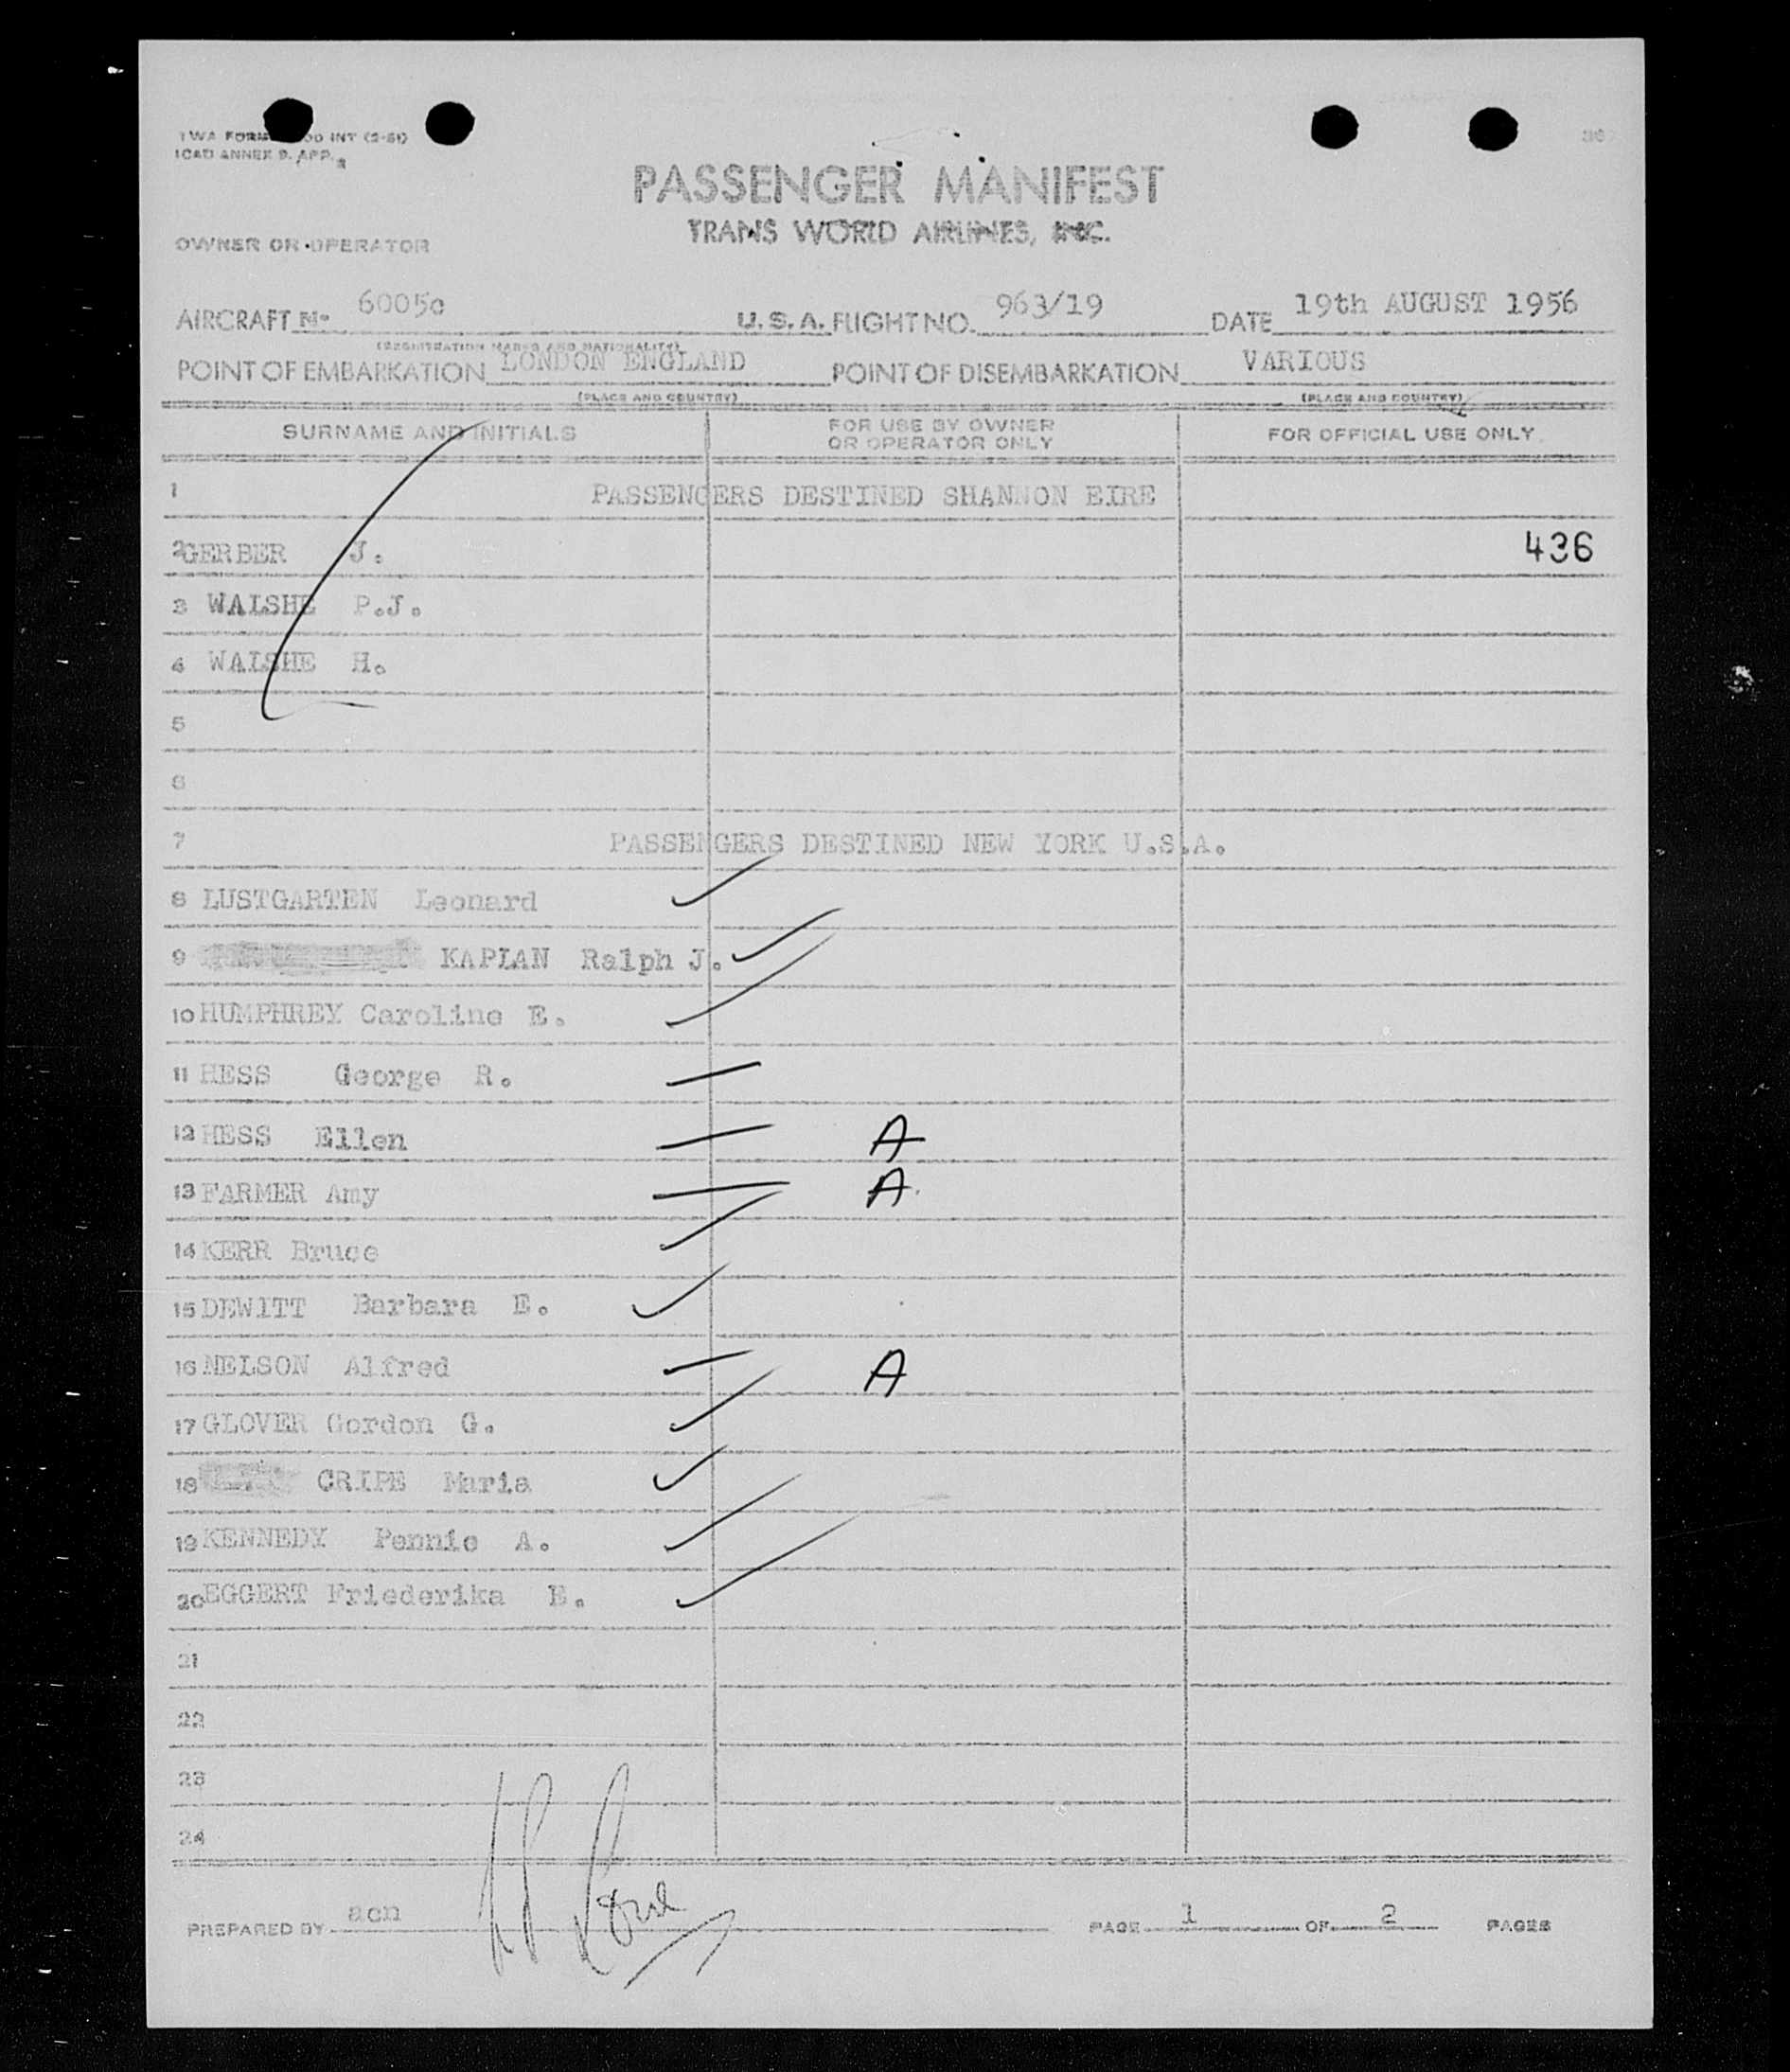 TWA FORM 00 INT (2-51)
ICAO ANNEX 9. APP. 2
PASSENGER MANIFEST
TRANS WORLD AIRLINES, INC.
OWNER OR OPERATOR
AIRCRAFT No. 6005c U.S.A. FLIGHT NO. 963/19 DATE 19th AUGUST 1956
(REGISTRATION MARKS AND NATIONALITY)
POINT OF EMBARKATION LONDON ENGLAND POINT OF DISEMBARKATION VARIOUS
(PLACE AND COUNTRY) (PLACE AND COUNTRY)
SURNAME AND INITIALS FOR USE BY OWNER OR OPERATOR ONLY FOR OFFICIAL USE ONLY
1 PASSENGERS DESTINED SHANNON EIRE
2 GERBER J. 436
3 WALSHE P.J.
4 WALSHE H.
5
6
7 PASSENGERS DESTINED NEW YORK U.S.A.
8 LUSTGARTEN Leonard
9 KAPLAN Ralph J.
10 HUMPHREY Caroline E.
11 HESS George R.
12 HESS Ellen A
13 FARMER Amy A
14 KERR Bruce
15 DEWITT Barbara E.
16 NELSON Alfred A
17 GLOVER Gordon G.
18 CRIPE Maria
19 KENNEDY Pennie A.
20 EGGERT Friederika E.
21
22
23
24
PREPARED BY acn PAGE 1 OF 2 PAGES